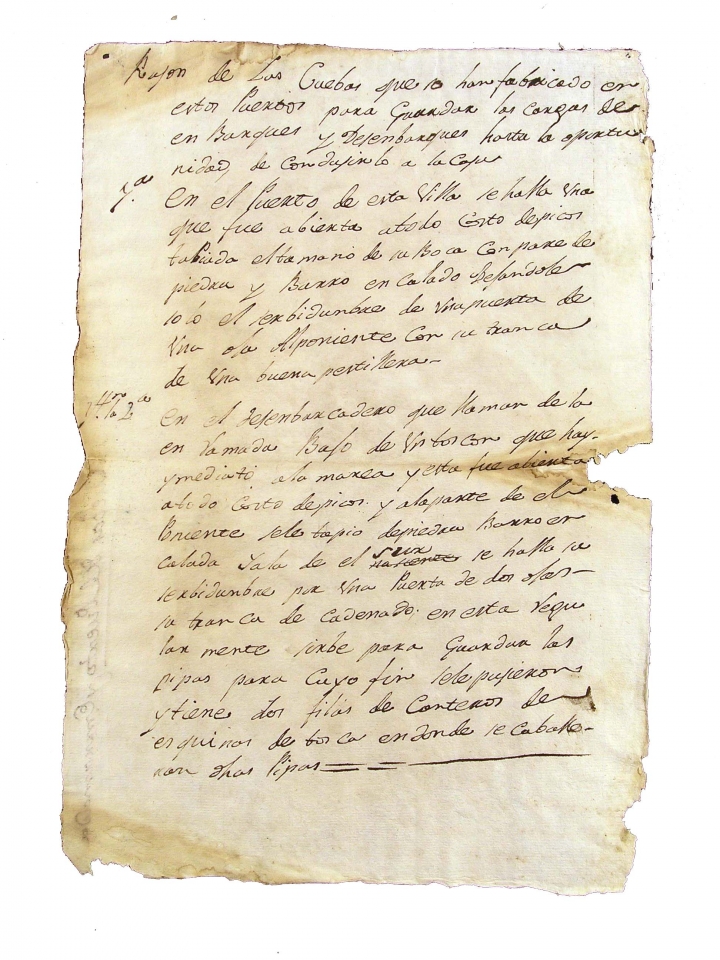 Rason de Las Cuebas que se han fabricado en
estos Puertos para Guardar las cargas de
en Barques y Desenbarques hasta la oportu
nidad, de Condusirlo a la Casa
1.ª En el Puerto de esta Villa se halla Una
que fue abierta a todo Costo de picos
tapiada el tamaño de su Boca con pare de
piedra y Barro en calado Desandole
solo el serbidunbre de Una puerta de
Una oja Al poniente Con su tranca
de Una buena pestillera-
2.ª En el Desenbarcadero que llaman de la
en Ramada Baso de Un toscon que hay
ymediato a la marea y esta fue abierta
a todo Costo de picos y a la parte de el
Poniente se le tapio de piedra Barro en
calada y a la de el sur se halla su
serbidunbre por Una Puerta de dos ojas
su tranca de Cadenado. en esta Regu
lar mente sirbe para Guardar las
pipas para Cuyo fin se le pusieron
y tiene dos filas de Canteros de
esquinas de tosca en donde se caballe-
nan dhas Pipas